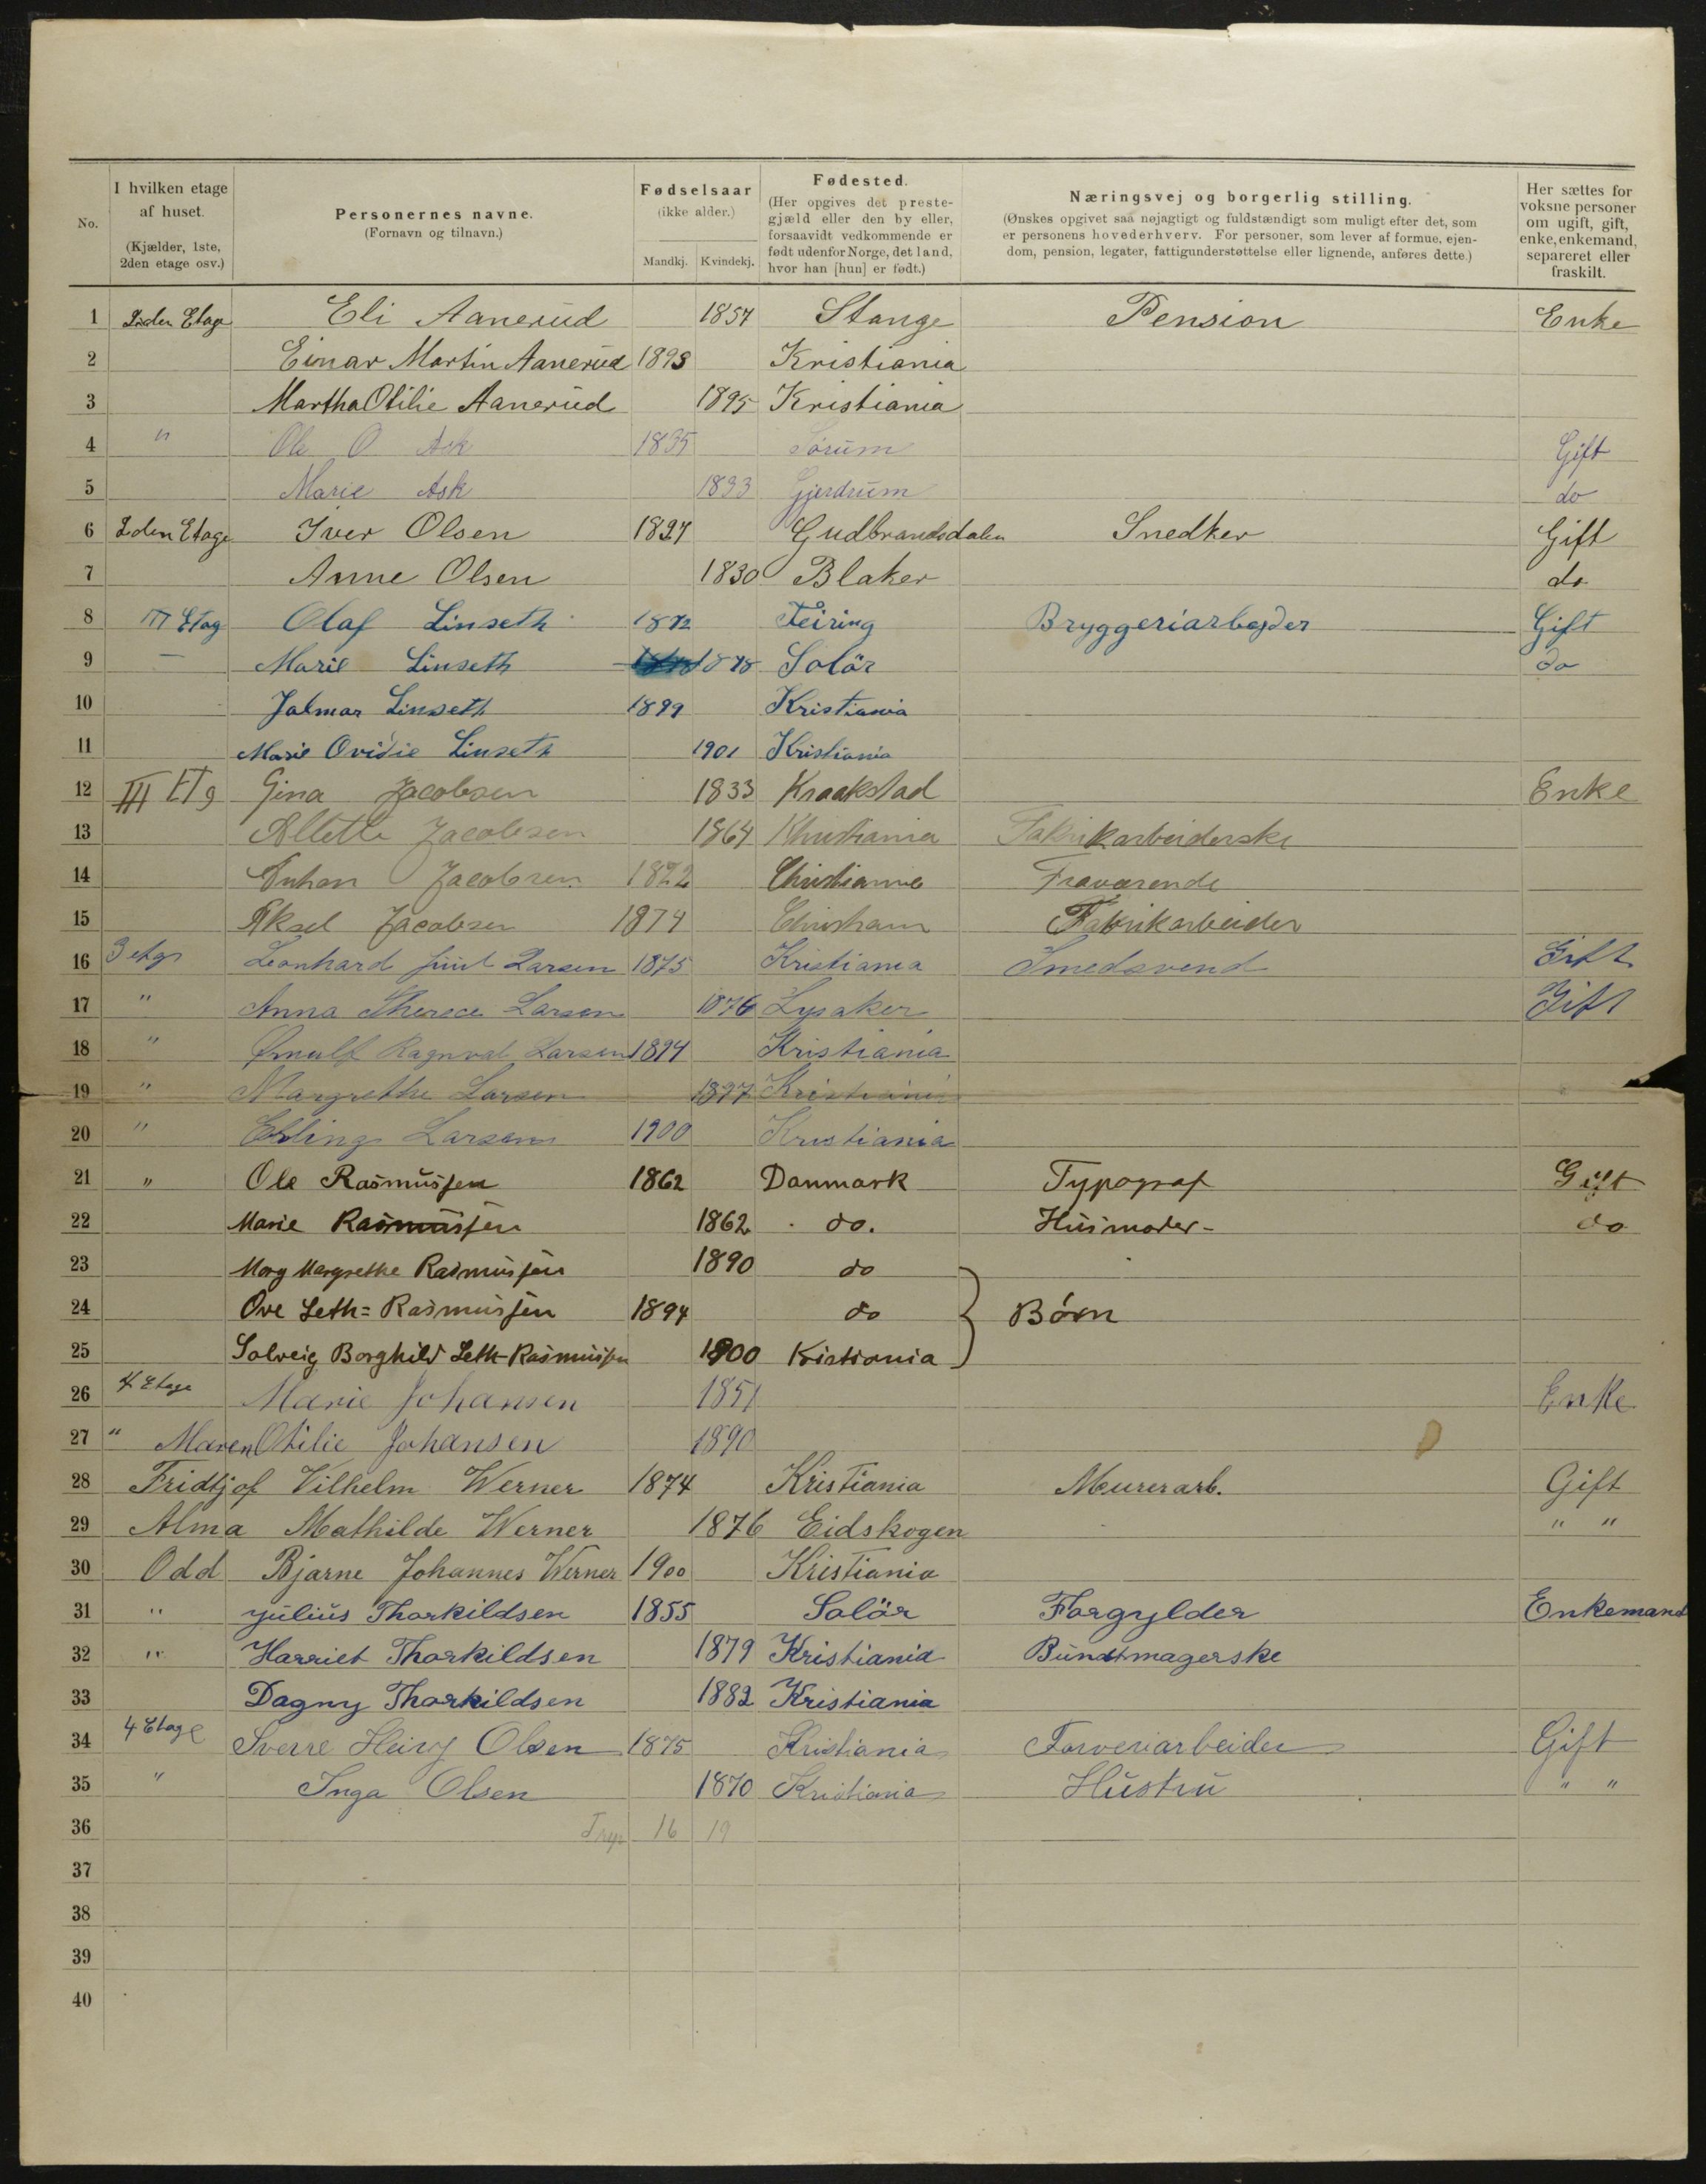 No.
I hvilken etage af huset.
(Kjælder, 1ste, 2den etage osv.)
Personernes navne.
(Fornavn og tilnavn.)
Fødselsaar
(ikke alder.)
Mandkj. Kvindekj.
Fødested.
(Her opgives det preste-
gjæld eller den by eller,
forsaavidt vedkommende er
født udenfor Norge, det land,
hvor han [hun] er født.)
Næringsvej og borgerlig stilling.
(Ønskes opgivet saa nøjagtigt og fuldstændigt som muligt efter det, som
er personens hovederhverv. For personer, som lever af formue, ejen-
dom, pension, legater, fattigunderstøttelse eller lignende, anføres dette.)
Her sættes for
voksne personer
om ugift, gift,
enke, enkemand,
separeret eller
fraskilt.
1 2den Etage Eli Aanerud 1857 Stange Pension Enke
2 Einar Martin Aanerud 1893 Kristiania
3 Martha Otilie Aanerud 1895 Kristiania
4 " Ole O Ask 1835 Sørum Gift
5 Marie Ask 1833 Gjerdrum do
6 2den Etage Iver Olsen 1827 Gudbrandsdalen Snedker Gift
7 Anne Olsen 1830 Blaker do
8 III Etag Olaf Linseth 1872 Feiring Bryggeriarbejder Gift
9 — Marie Linseth 1878 Solör do
10 Jalmar Linseth 1899 Kristiania
11 Marie Ovidie Linseth 1901 Kristiania
12 III Etg Gina Jacobsen 1833 Kraakstad Enke
13 Allette Jacobsen 1864 Khristiania Fabrikarbeiderske
14 Anton Jacobsen 1872 Christiania Fraværende
15 Aksel Jacobsen 1874 Christiani Fabrikarbeider
16 3 etg Leonhard Juul Larsen 1875 Kristiania Smedsvend Gift
17 " Anna Therece Larsen 1876 Lysaker Gift
18 " Ørnulf Ragnval Larsen 1894 Kristiania
19 " Margrethe Larsen 1897 Kristiania
20 " Erling Larsen 1900 Kristiania
21 " Ole Rasmussen 1862 Danmark Typograf Gift
22 Marie Rasmussen 1862 do. Husmoder- do
23 Mary Margrethe Rasmussen 1890 do
24 Ove Leth= Rasmussen 1894 do Børn
25 Solveig Borghild Leth-Rasmussen 1900 Kristiania
26 4 Etage Marie Johansen 1851 Enke
27 " Maren Otilie Johansen 1890
28 Fridtjof Vilhelm Werner 1874 Kristiania Murerarb. Gift
29 Alma Mathilde Werner 1876 Eidskogen " "
30 Odd Bjarne Johannes Werner 1900 Kristiania
31 " Julius Thorkildsen 1855 Solör Forgylder Enkemand
32 " Harriet Thorkildsen 1879 Kristiania Buntmagerske
33 Dagny Thorkildsen 1882 Kristiania
34 4 Etage Sverre Olsen 1875 Kristiania Farveriarbeider Gift
35 " Inga Olsen 1870 Kristiania Hustru " "
36 16 19
37
38
39
40